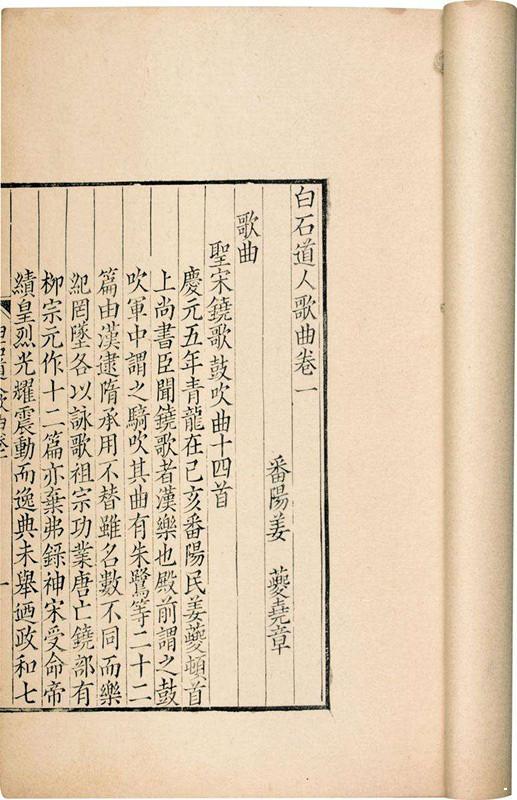 白石道人歌曲卷一
番陽姜 夔堯章
歌曲
聖宋鐃歌鼓吹曲十四首
慶元五年青龍在己亥番陽民姜夔頓首
上尚書臣聞鐃歌者漢樂也殿前謂之鼓
吹軍中謂之騎吹其曲有朱鷺等二十二
篇由漢逮隋承用不替雖名數不同而樂
紀罔墜各以詠歌祖宗功業唐亡鐃部有
柳宗元作十二篇亦棄弗錄神宋受命帝
績皇烈光耀震動而逸典未舉迺政和七
白石道人歌曲卷一
一